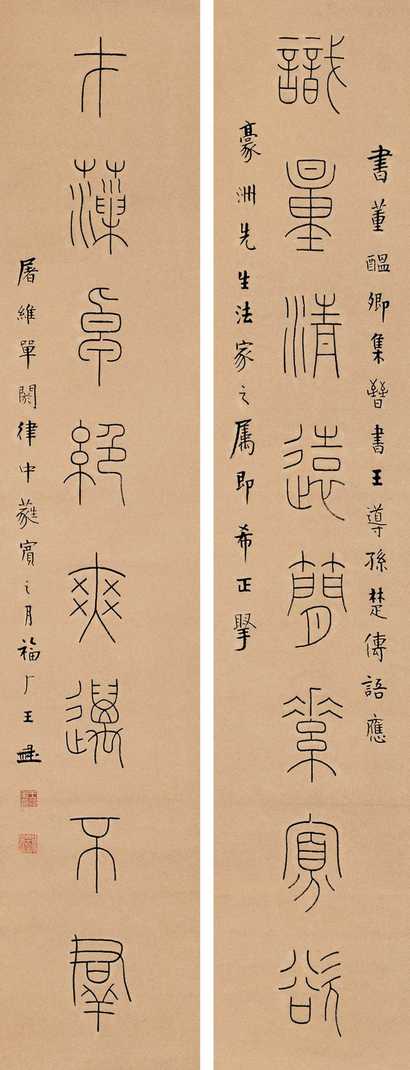 書董醖卿集晉書王導孫楚傳語應
識量清遠簡素寡欲
豪洲先生法家之属即希正擥
才藻卓絕爽邁不羣
屠維單閼律中蕤賓之月福厂王禔